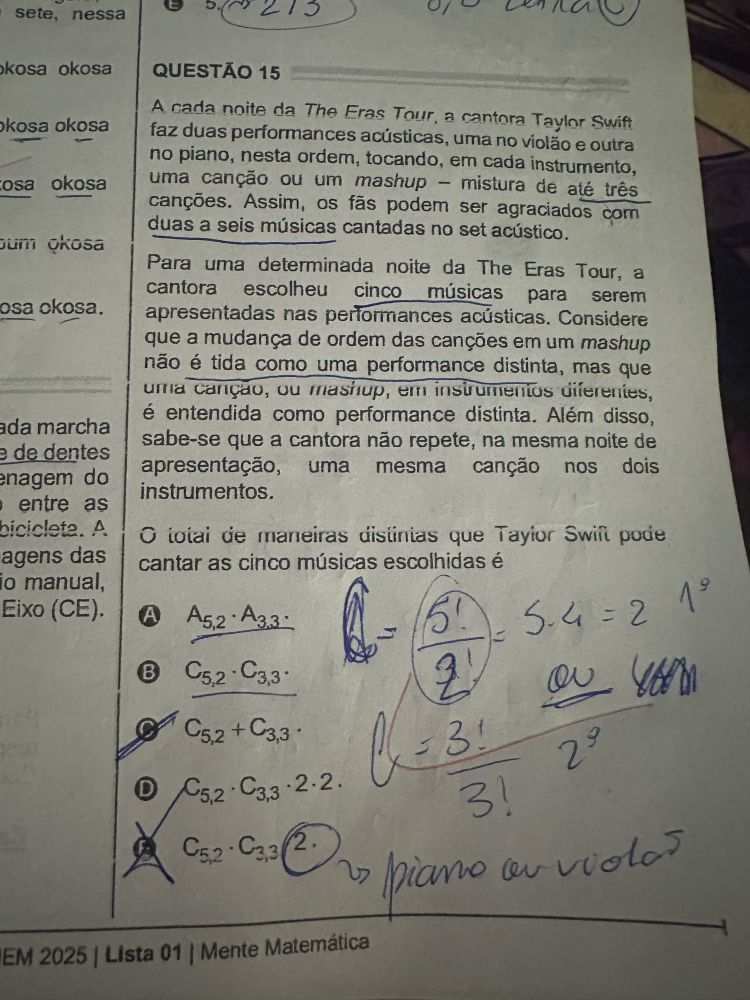 sete, nessa
okosa okosa
okosa okosa
osa okosa
okosa
osa okosa.
ada marcha
e de dentes
enagem do
entre as
bicicleta. A
agens das
io manual,
Eixo (CE).
E 5.
213
QUESTÃO 15
A cada noite da The Eras Tour, a cantora Taylor Swift
faz duas performances acústicas, uma no violão e outra
no piano, nesta ordem, tocando, em cada instrumento,
uma canção ou um mashup – mistura de até três
canções. Assim, os fãs podem ser agraciados com
duas a seis músicas cantadas no set acústico.
Para uma determinada noite da The Eras Tour, a
cantora escolheu cinco músicas para serem
apresentadas nas performances acústicas. Considere
que a mudança de ordem das canções em um mashup
não é tida como uma performance distinta, mas que
uma canção, ou mashup, em instrumentos diferentes,
é entendida como performance distinta. Além disso,
sabe-se que a cantora não repete, na mesma noite de
apresentação, uma mesma canção nos dois
instrumentos.
O total de maneiras distintas que Taylor Swift pode
cantar as cinco músicas escolhidas é
A A5,2 · A3,3.
B C5,2 · C3,3.
C C5,2 + C3,3.
D C5,2 · C3,3 · 2 · 2.
E C5,2 · C3,3 · 2.
= 5! = 5.4 = 2 1º
ou
= 3! 2º
3!
piano ou violão
EM 2025 | Lista 01 | Mente Matemática